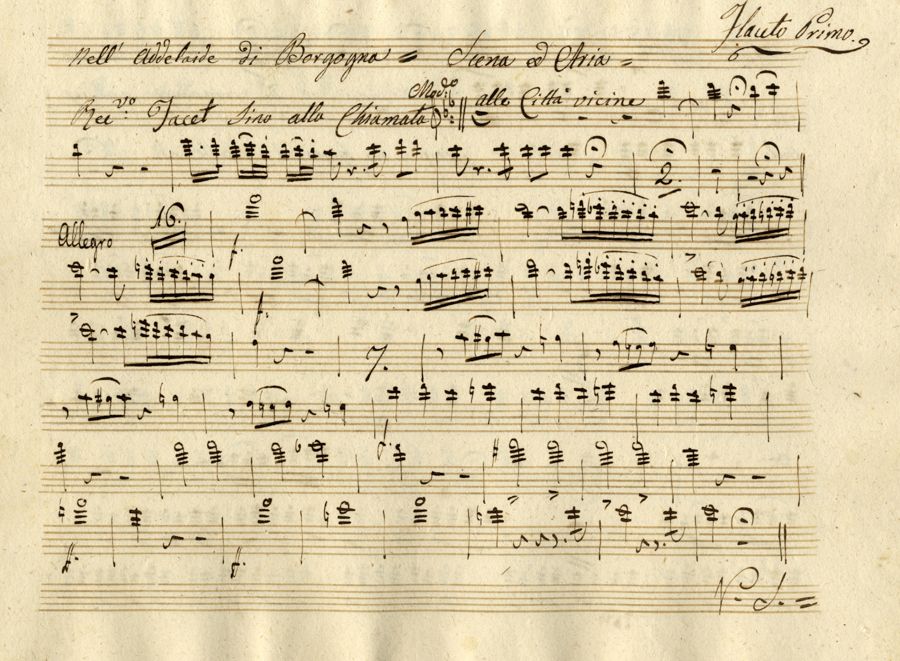 Flauto Primo.
Nell' Addelaide di Borgogna = Scena ed Aria =
Rec.vo Tacet Sino alla Chiamata Mod.to alle Città vicine
2.
Allegro 16. f.
f.
7.
f.
ff. ff.
V. S. =